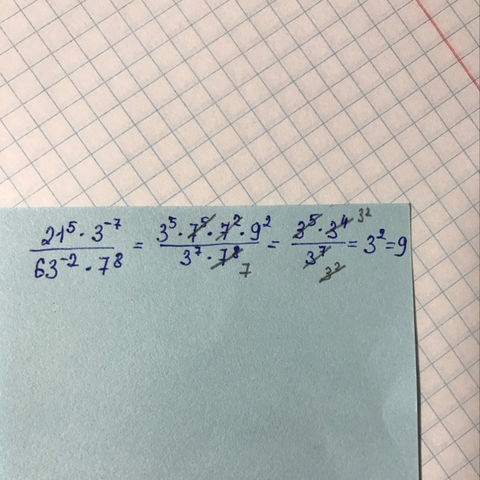 21⁵ · 3⁻⁷ / 63⁻² · 7⁸ = 3⁵ · 7⁵ · 7² · 9² / 3⁷ · 7⁸ 7 = 3⁵ · 3⁴ 3² / 3⁷ 3² = 3² = 9